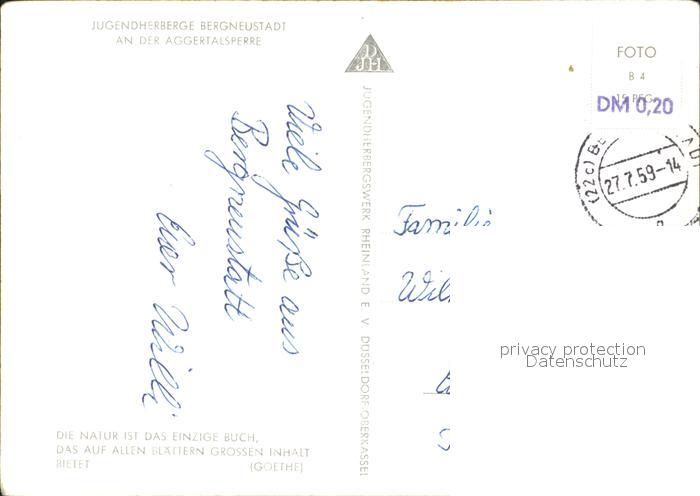 JUGENDHERBERGE BERGNEUSTADT
AN DER AGGERTALSPERRE
DJH
FOTO
B 4
15 PFG.
DM 0,20
(22c) BE
27.7.59-14
JUGENDHERBERGSWERK RHEINLAND E V DÜSSELDORF-OBERKASSEL
Viele Grüße aus
Bergneustatt
Euer Willi
Familie
Wil
privacy protection
Datenschutz
DIE NATUR IST DAS EINZIGE BUCH,
DAS AUF ALLEN BLÄTTERN GROSSEN INHALT
BIETET (GOETHE)